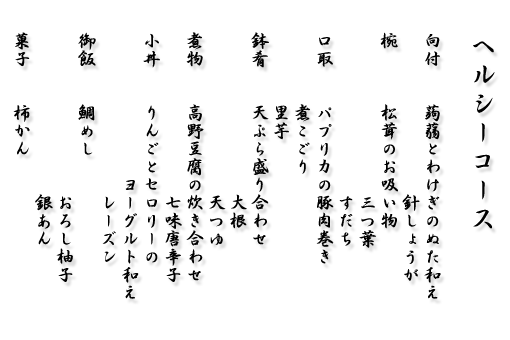 ヘルシーコース
向付　蒟蒻とわけぎのぬた和え
針しょうが
椀　松茸のお吸い物
三つ葉
すだち
口取　パプリカの豚肉巻き
煮こごり
里芋
鉢肴　天ぷら盛り合わせ
大根
天つゆ
煮物　高野豆腐の炊き合わせ
七味唐辛子
小丼　りんごとセロリーの
ヨーグルト和え
レーズン
御飯　鯛めし
おろし柚子
銀あん
菓子　柿かん